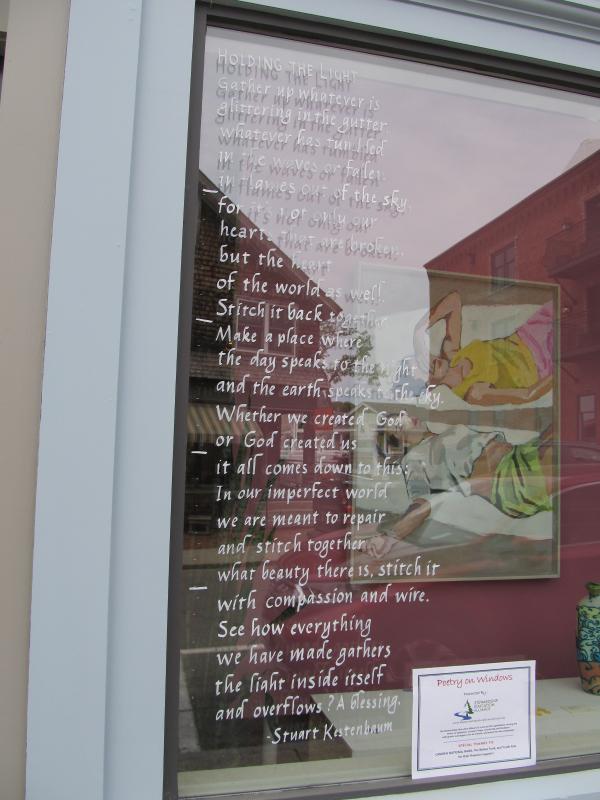 HOLDING THE LIGHT
Gather up whatever is
glittering in the gutter
whatever has tumbled
in the waves or fallen
in flames out of the sky,
for it's not only our
hearts that are broken,
but the heart
of the world as well.
Stitch it back together
Make a place where
the day speaks to the night
and the earth speaks to the sky.
Whether we created God
or God created us
it all comes down to this:
In our imperfect world
we are meant to repair
and stitch together
what beauty there is, stitch it
with compassion and wire.
See how everything
we have made gathers
the light inside itself
and overflows? A blessing.
-Stuart Kestenbaum
Poetry on Windows
Presented By:
STEWARDSHIP
EDUCATION
ALLIANCE
SPECIAL THANKS TO: